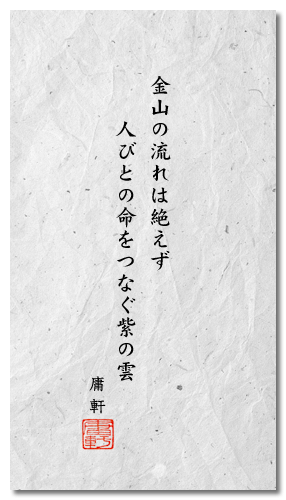 金山の流れは絶えず
人びとの命をつなぐ紫の雲
庸軒